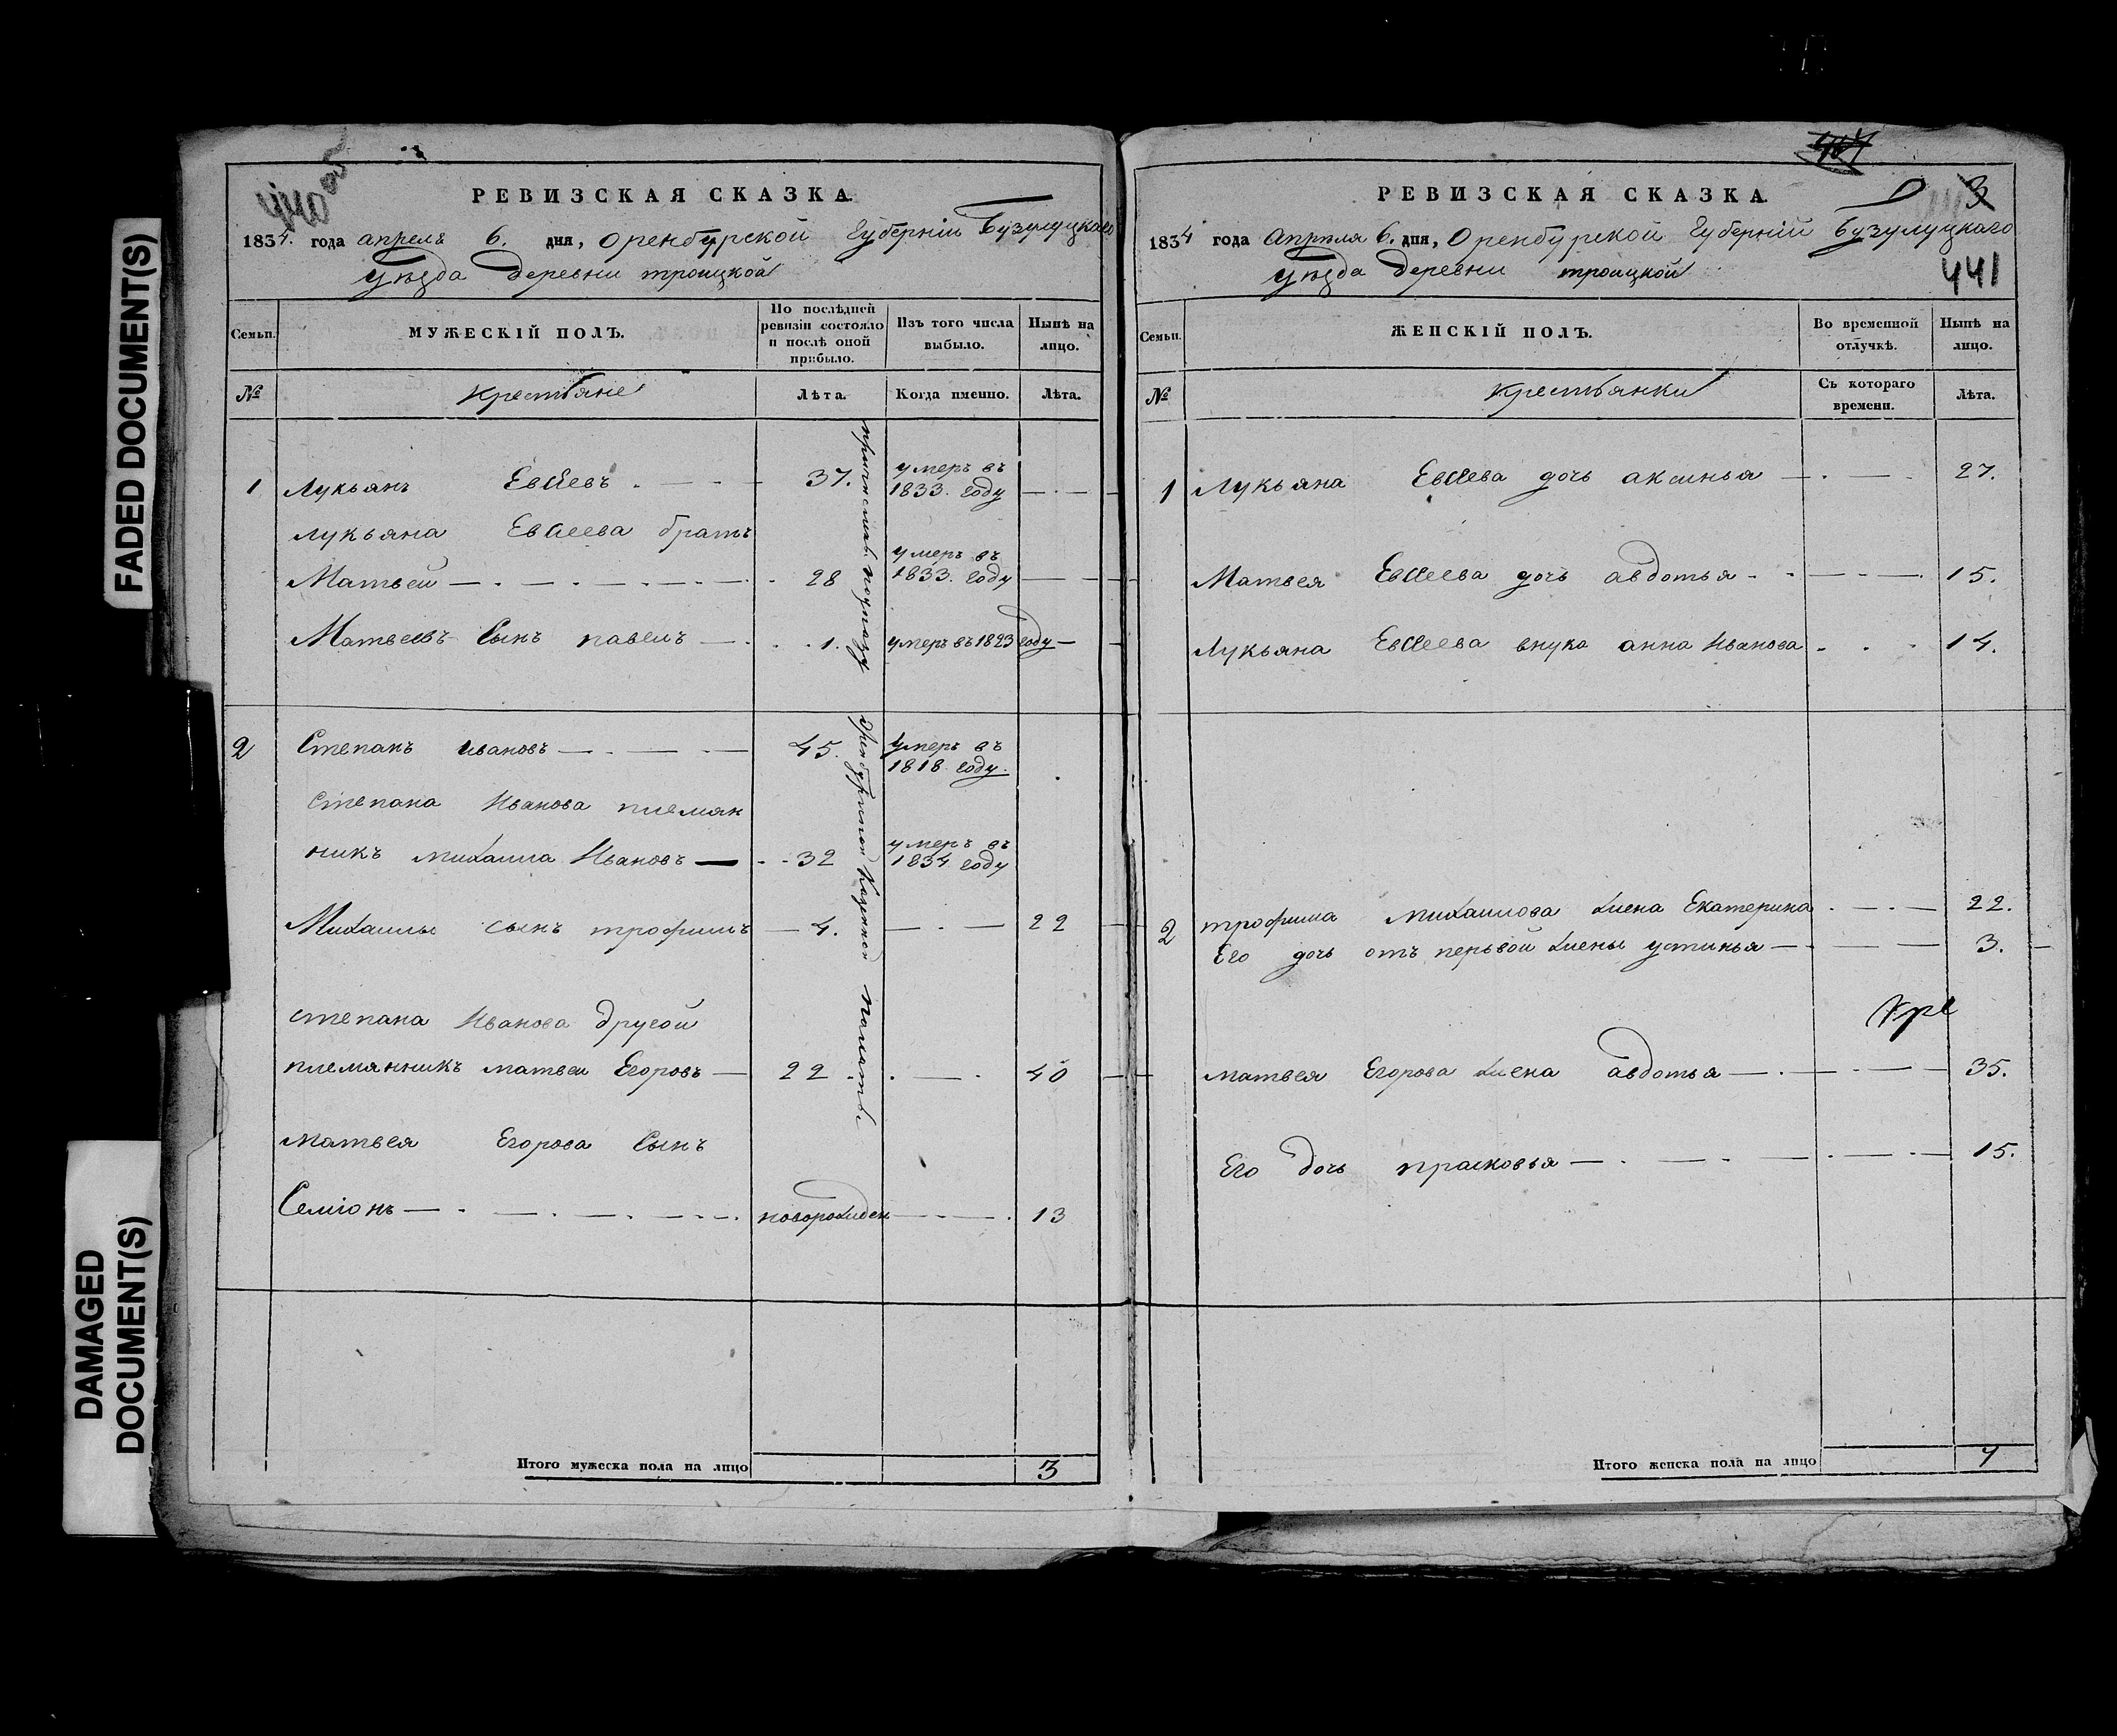 FADED DOCUMENT(S)
DAMAGED
DOCUMENT(S)
440 об
РЕВИЗСКАЯ СКАЗКА.
1834. года апрель 6. дня, Оренбурской Губерніи Бузулуцкаго
Уѣзда Деревни троицкой
Семьи.
МУЖЕСКІЙ ПОЛЪ.
По послѣдней
ревизіи состояло
и послѣ оной
прибыло.
Изъ того числа
выбыло.
Нынѣ на
лицо.
№
Крестьяне
Лѣта.
Когда именно.
Лѣта.
1 Лукьянъ Евсеевъ 37. умеръ въ
1833. году
Лукьяна Евсеева братъ
Матвей 28 умеръ въ
1833. году
Матвеевъ Сынъ павелъ 1. умеръ въ 1823 году
2 Степанъ ивановъ 45. умеръ въ
1818 году.
Степана Иванова племян
никъ михаила Ивановъ 32 умеръ въ
1834 году
Михаилы сынъ трофимъ 4. 22
степана Иванова другой
племянникъ матвеи Егоровъ 22 40
матвея Егорова Сынъ
Семіонъ новорожден 13
Оренбургской Казенной палатѣ
Итого мужеска пола на лицо 3
3
РЕВИЗСКАЯ СКАЗКА.
441
1834 года Апреля 6. дня, Оренбурской Губерній Бузулуцкаго
Уѣзда Деревни троицкой
Семьи.
ЖЕНСКІЙ ПОЛЪ.
Во временной
отлучкѣ.
Нынѣ на
лицо.
№
Крестьянки
Съ котораго
времени.
Лѣта.
1 Лукьяна Евсеева дочь аксинья 27.
Матвея Евсеева дочь авдотья 15.
Лукьяна Евсеева внука анна Иванова 14.
2 трофима михаилова жена Екатерина 22.
Его дочь отъ перьвой жены устинья 3.
матвея Егорова жена авдотья 35.
Его дочь прасковья 15.
Итого женска пола на лицо 7